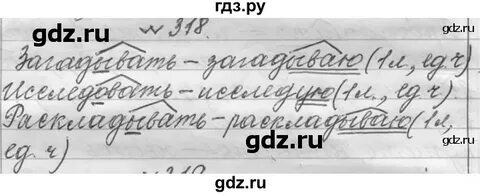 гдз.ру
№ 318.
gdz.ru gdz.ru gdz.ru
Загадывать – загадываю (1л, ед.ч)
Исследовать – исследую (1л., ед.ч)
Раскладывать – раскладываю (1л,
ед. ч)
gdz.ru gdz.ru gdz.ru